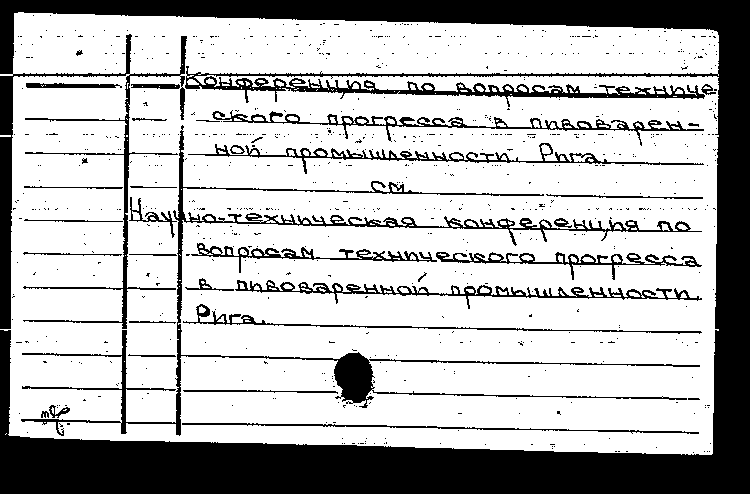 Конференция по вопросам техниче
ского прогресса в пивоварен-
ной промышленности. Рига.
см.
Научно-техническая конференция по
вопросам технического прогресса
в пивоваренной промышленности.
Рига.